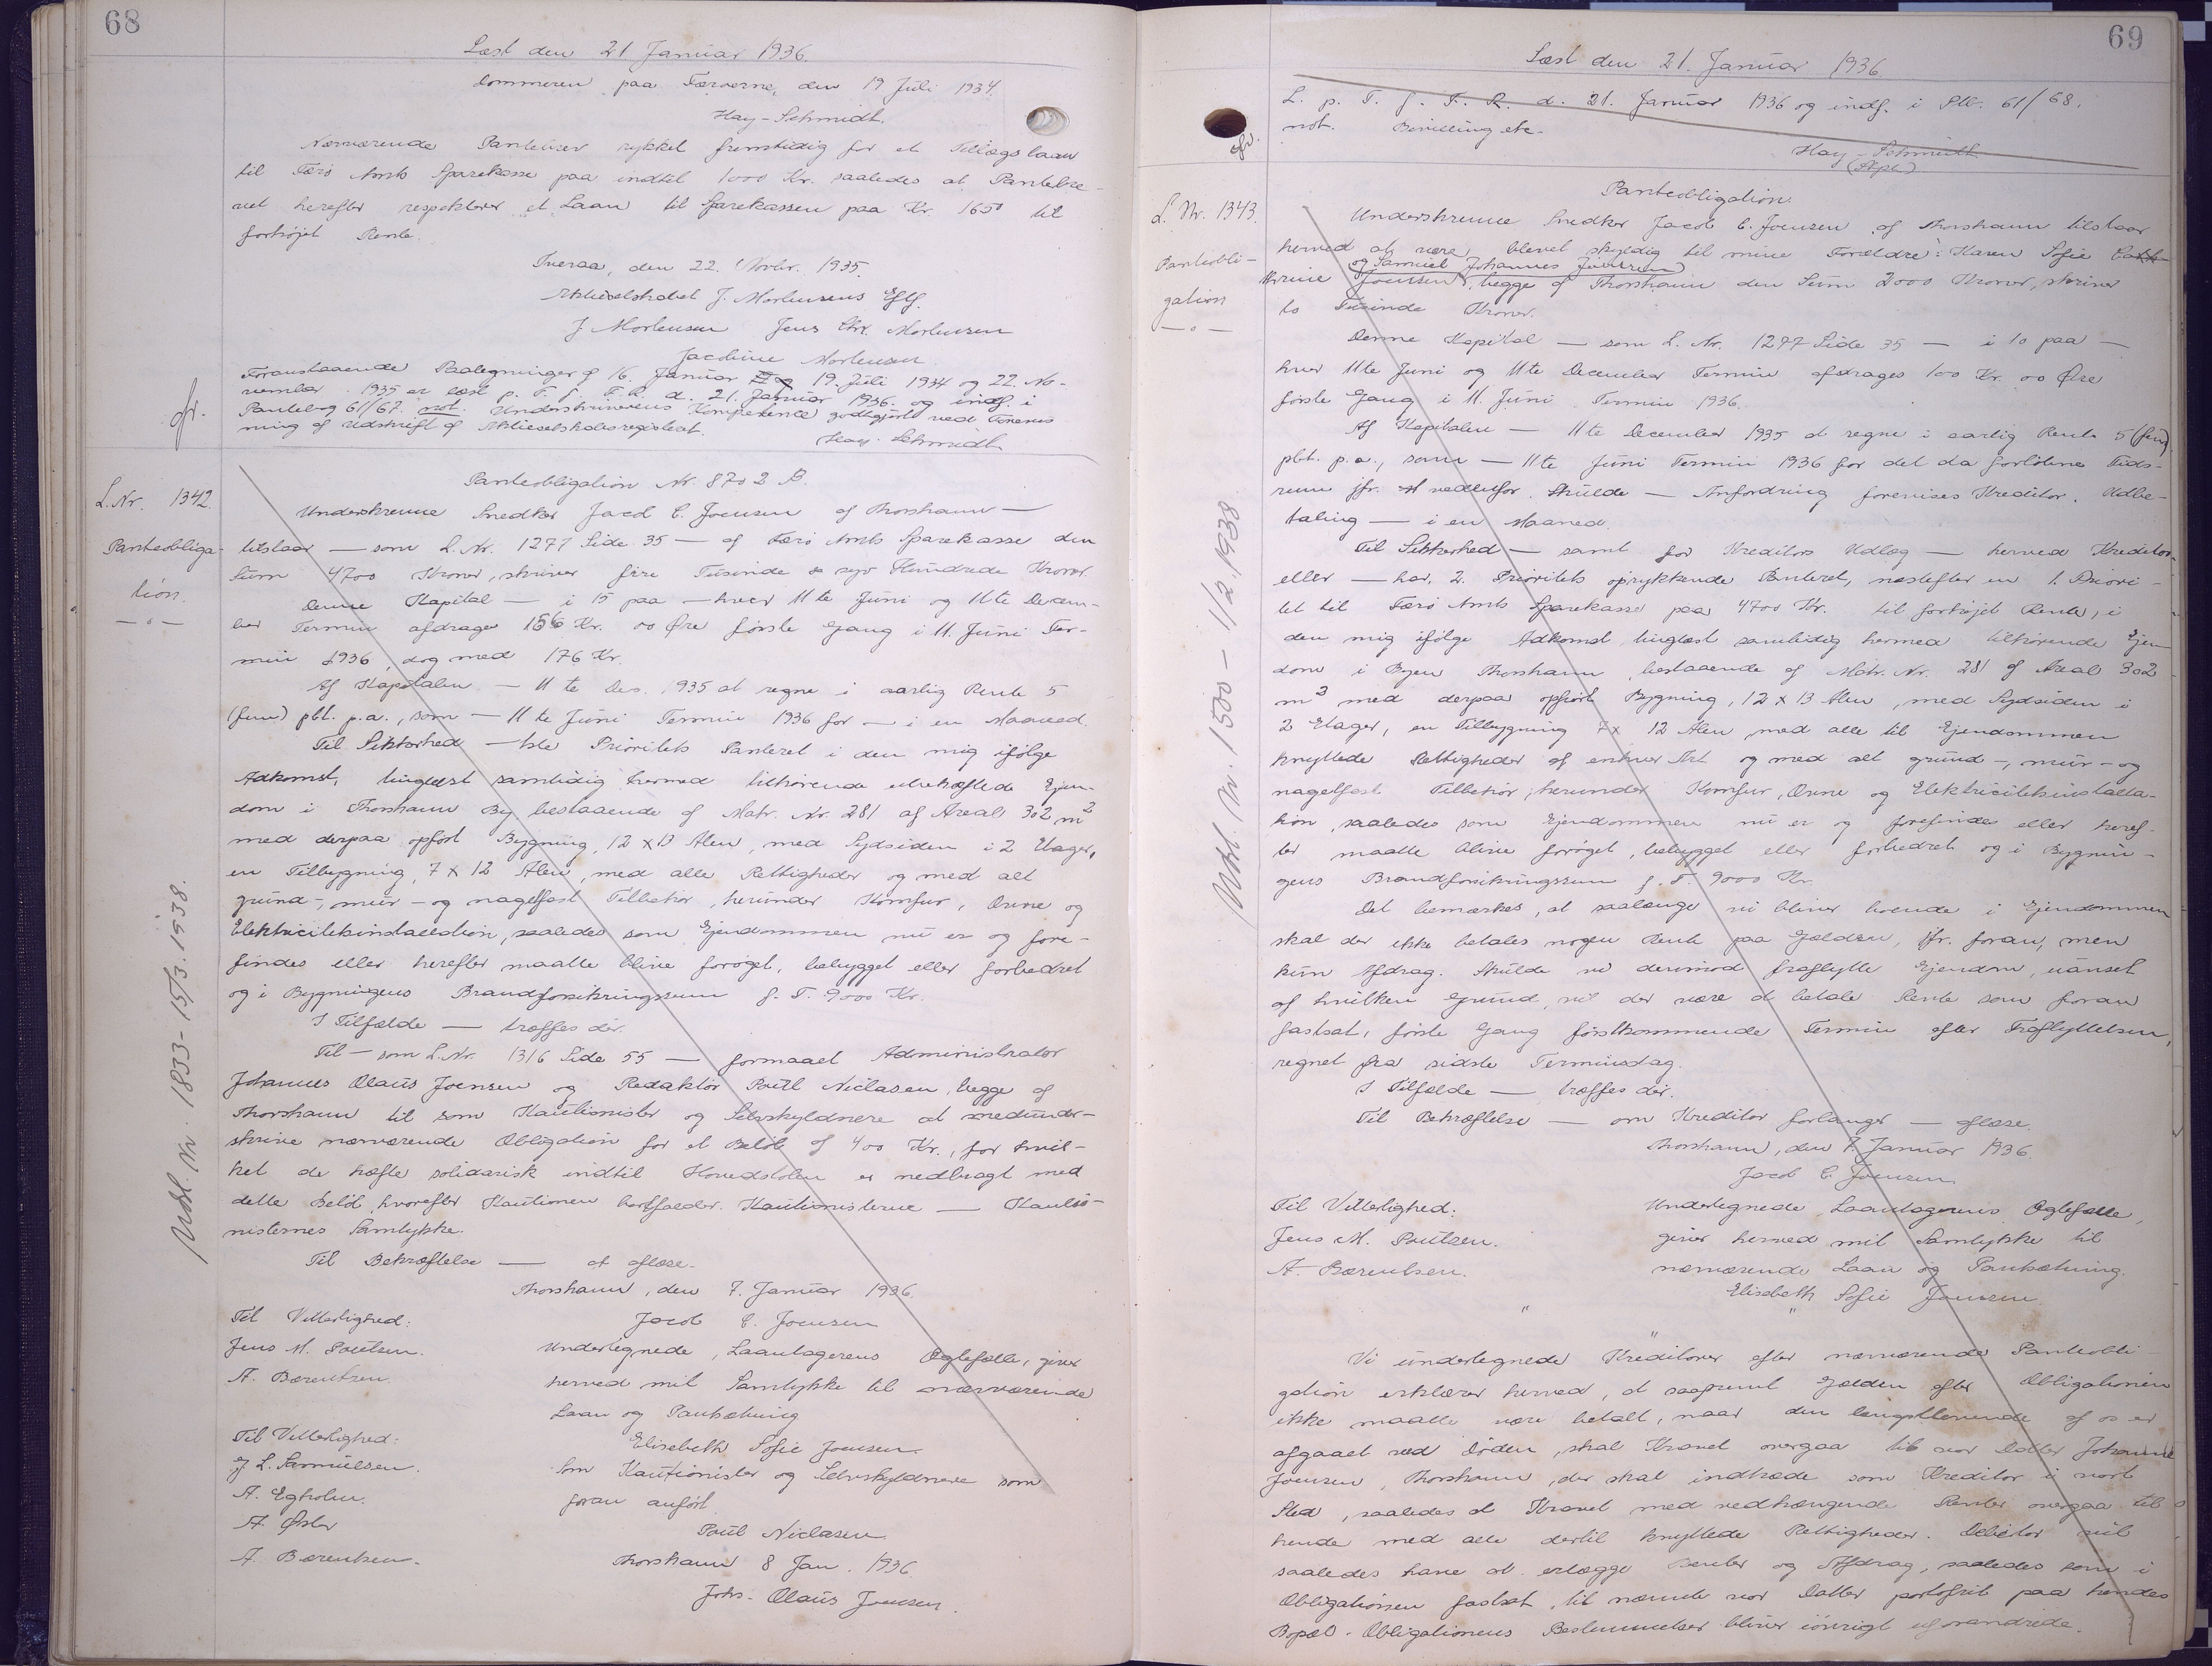 68
Læst den 21 Januar 1936.
Dommeren paa Færøerne, den 19 Juli 1934.
Hay-Schmidt.
Nærværende Pantebrev rykket fremtidig for et Tillægslaan
til Færø Amts Sparekasse paa indtil 1000 Kr. saaledes at Pantebre-
vet herefter respekterer et Laan til Sparekassen paa Kr. 1650 til
forhøjet Rente.
Tveraa, den 22. Novbr. 1935.
Aktieselskabet J. Mortensens Eftf.
J Mortensen Jens Chr. Mortensen
Jacobine Mortensen.
Foranstaaende Paategninger af 16. Januar 19. Juli 1934 og 22. No-
vember 1935 er læst p. T. f. F. R. d. 21. Januar 1936. og indf. i
Pantebog 61/67. not. Underskriverens Kompetence godtgjort ved Forevis
ning af Udskrift af Aktieselskabsregistret.
Hay-Schmidt
L. Nr. 1342.
Panteobliga-
tion.
— o —
Panteobligation Nr. 8702 B.
Underskrevne Snedker Jacob C. Joensen af Thorshavn —
tilstaar — som L. Nr. 1277 Side 35 — af Færø Amts Sparekasse den
Sum 4700 Kroner, skriver fire Tusinde syv Hundrede Kroner.
Denne Kapital — i 15 paa — hver 11te Juni og 11te Decem-
ber Termin afdrages 156 Kr. 00 Øre første Gang i 11. Juni Ter-
min 1936, dog med 176 Kr.
Af Kapitalen — 11te Des. 1935 at regne i aarlig Rente 5
(fem) pCt. p.a., som — 11te Juni Termin 1936 for — i en Maaned.
Til Sikkerhed — 1ste Prioritets Panteret i den mig ifølge
Adkomst, tinglæst samtidig hermed tilhørende ubehæftede Ejen-
dom i Thorshavn By bestaaende af Matr. Nr. 281 af Areal 302 m2
med derpaa opført Bygning, 12 x 13 Alen, med Sydsiden i 2 Etager,
en Tilbygning, 7 x 12 Alen, med alle Rettigheder og med alt
grund-, mur- og nagelfast Tilbehør, herunder Komfur, Ovne og
Elektricitetsinstallation, saaledes som Ejendommen nu er og fore-
findes eller herefter maatte blive forøget, bebygget eller forbedret
og i Bygningens Brandforsikringssum f. T. 9000 Kr.
I Tilfælde — træffes dér.
Til — som L. Nr. 1316 Side 55 — formaaet Administrator
Johannes Olaus Joensen og Redaktør Poul Niclasen, begge af
Thorshavn til som Kautionister og Selvskyldnere at medunder-
skrive nærværende Obligation for et Beløb af 400 Kr., for hvil-
ket de hæfte solidarisk indtil Hovedstolen er nedbragt med
dette Beløb, hvorefter Kautionen bortfalder. Kautionisterne — Kautio-
nisternes Samtykke.
Til Bekræftelse — at aflæse.
Thorshavn, den 7. Januar 1936.
Til Vitterlighed: Jacob C. Joensen
Jens M. Poulsen. Undertegnede, Laantagerens Ægtefælle, giver
A. Bærentsen. herved mit Samtykke til nærværende
Laan og Pantsætning
Til Vitterlighed: Elisabeth Sofie Joensen.
J. L. Samuelsen. Som Kautionister og Selvskyldnere som
A. Egholm. foran anført
A. Øster Poul Niclasen
A. Bærentsen. Thorshavn 8 Jan. 1936.
Johs. Olaus Joensen.
Udsl. Nr. 1833-15/3.1938.
69
Læst den 21. Januar 1936
L. p. T. f. F. R. d. 21. Januar 1936 og indf. i Ptb. 61/68.
not. Bevilling etc.
Hay-Schmidt
L. Nr. 1343.
Panteobli-
gation
— o —
Panteobligation.
Underskrevne Snedker Jacob C. Joensen af Thorshavn tilstaar
herved at være blevet skyldig til mine Forældre: Karen Sofie
og Samuel Johannes Joensen
Joensen, begge af Thorshavn den Sum 2000 Kroner, skriver
to Tusinde Kroner.
Denne Kapital — som L. Nr. 1277 Side 35 — i 10 paa —
hver 11te Juni og 11te December Termin afdrages 100 Kr. 00 Øre
første Gang i 11. Juni Termin 1936.
Af Kapitalen — 11te December 1935 at regne i aarlig Rente 5 (fem)
pCt. p.a., som — 11te Juni Termin 1936 for det da forløbne Tids-
rum jfr. nedenfor. Skulde — Anfordring forevises Kreditor. Udbe-
taling — i en Maaned.
Til Sikkerhed — samt for Kreditors Udlæg — herved Kreditor
eller — har, 2. Prioritets oprykkende Panteret, næstefter en 1. Priori-
tet til Færø Amts Sparekasse paa 4700 Kr. til forhøjet Rente, i
den mig ifølge Adkomst tinglæst samtidig hermed tilhørende Ejen-
dom i Byen Thorshavn, bestaaende af Matr. Nr. 281 af Areal 302
m2 med derpaa opført Bygning, 12 x 13 Alen, med Sydsiden i
2 Etager, en Tilbygning 7 x 12 Alen med alle til Ejendommen
knyttede Rettigheder af enhver Art og med alt grund-, mur- og
nagelfast Tilbehør, herunder Komfur, Ovne og Elektricitetsinstalla-
tion, saaledes som Ejendommen nu er og forefindes eller heref-
ter maatte blive forøget, bebygget eller forbedret og i Bygnin-
gens Brandforsikringssum f. T. 9000 Kr.
Det bemærkes, at saalænge vi bliver boende i Ejendommen
skal der ikke betales nogen Rente paa Gælden, jfr. foran, men
kun Afdrag. Skulde vi derimod fraflytte Ejendom, uanset
af hvilken Grund, vil der være at betale Rente som foran
fastsat, første Gang førstkommende Termin efter Fraflyttelsen,
regnet fra sidste Terminsdag.
I Tilfælde — træffes dér.
Til Bekræftelse — om Kreditor forlanger — aflæse.
Thorshavn, den 7. Januar 1936.
Jacob C. Joensen.
Til Vitterlighed: Undertegnede, Laantagerens Ægtefælle,
Jens M. Poulsen. giver herved mit Samtykke til
A. Bærentsen. nærværende Laan og Pantsætning.
Elisabeth Sofie Joensen
" " "
Vi undertegnede Kreditorer efter nærværende Panteobli-
gation erklærer herved, at saafremt Gælden efter Obligationen
ikke maatte være betalt, naar den længstlevende af os er
afgaaet ved Døden, skal Kravet overgaa til vor Datter Johanne
Joensen, Thorshavn, der skal indtræde som Kreditor i vort
Sted, saaledes at Kravet med vedhængende Renter overgaa til
hende med alle dertil knyttede Rettigheder. Debitor vil
saaledes have at erlægge Renter og Afdrag, saaledes som i
Obligationen fastsat, til nævnte vor Datter portofrit paa hendes
Bopæl. Obligationens Bestemmelser bliver iøvrigt uforandrede.
Udsl. Nr. 1500 - 11/2.1938